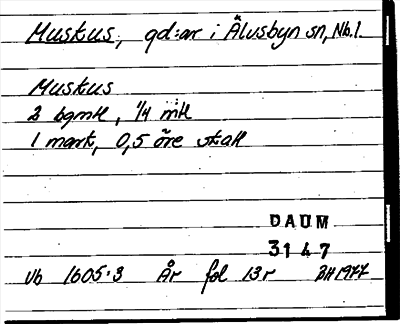 Muskus, gd:ar i Älvsbyn sn, Nb. l.
Muskus
2 bgmtl, 1/4 mtl
1 mark, 0,5 öre skatt
DAUM
3147
Vb 1605:3 Är fol 13r BH 1977